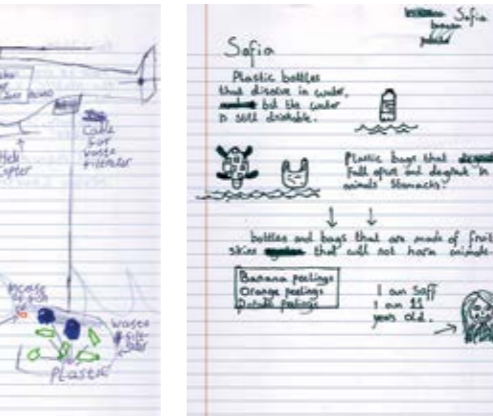 Heli
Copter
Cable
for
waste
filterator
Plastic
Sofia
Sofia
Plastic bottles
that disolve in water,
but the water
is still drinkable.
Plastic bags that
fall apart and degrade in
animals' stomachs.
bottles and bags that are made of fruit
skins that will not harm animals
Banana peelings
Orange peelings
Potato peelings
I am Saff
I am 11
years old.